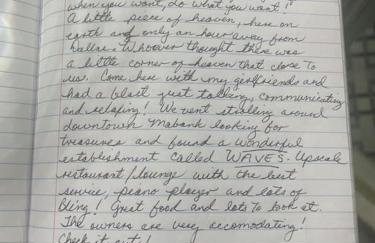 when you want, do what you want!"
A little piece of heaven, here on
earth and only an hour away from
Dallas. Whoever thought there was
a little corner of heaven that close to
us. Came here with my girlfriends and
had a blast just talking, communicating
and relaxing! We went strolling around
downtown Mabank looking for
treasures and found a wonderful
establishment called WAVES. Upscale
restaurant/lounge with the best
service, piano player and lots of
bling! Great food and lots to look at.
The owners are very accomodating!
Check it out!